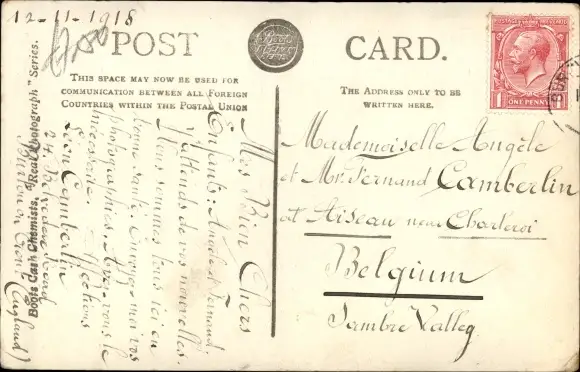 12-11-1918
POST CARD.
THIS SPACE MAY NOW BE USED FOR
COMMUNICATION BETWEEN ALL FOREIGN
COUNTRIES WITHIN THE POSTAL UNION
THE ADDRESS ONLY TO BE
WRITTEN HERE.
POSTAGE REVENUE
1 ONE PENNY 1
BUR
Mademoiselle Angèle
et Mr. Fernand Camberlin
at Aiseau near Charleroi
Belgium
Sambre Valley
Mes Bien Chers
Enfants: Angèle & Fernand.
J'attends de vos nouvelles.
Nous sommes tous ici en
bonne santé. Envoyez-moi vos
photographies. Avez-vous le
nécessaire. Affections
Léon Camberlin
24. Belvedere Road
Burton on Trent (England)
Boots Cash Chemists, "Real Photograph" Series.